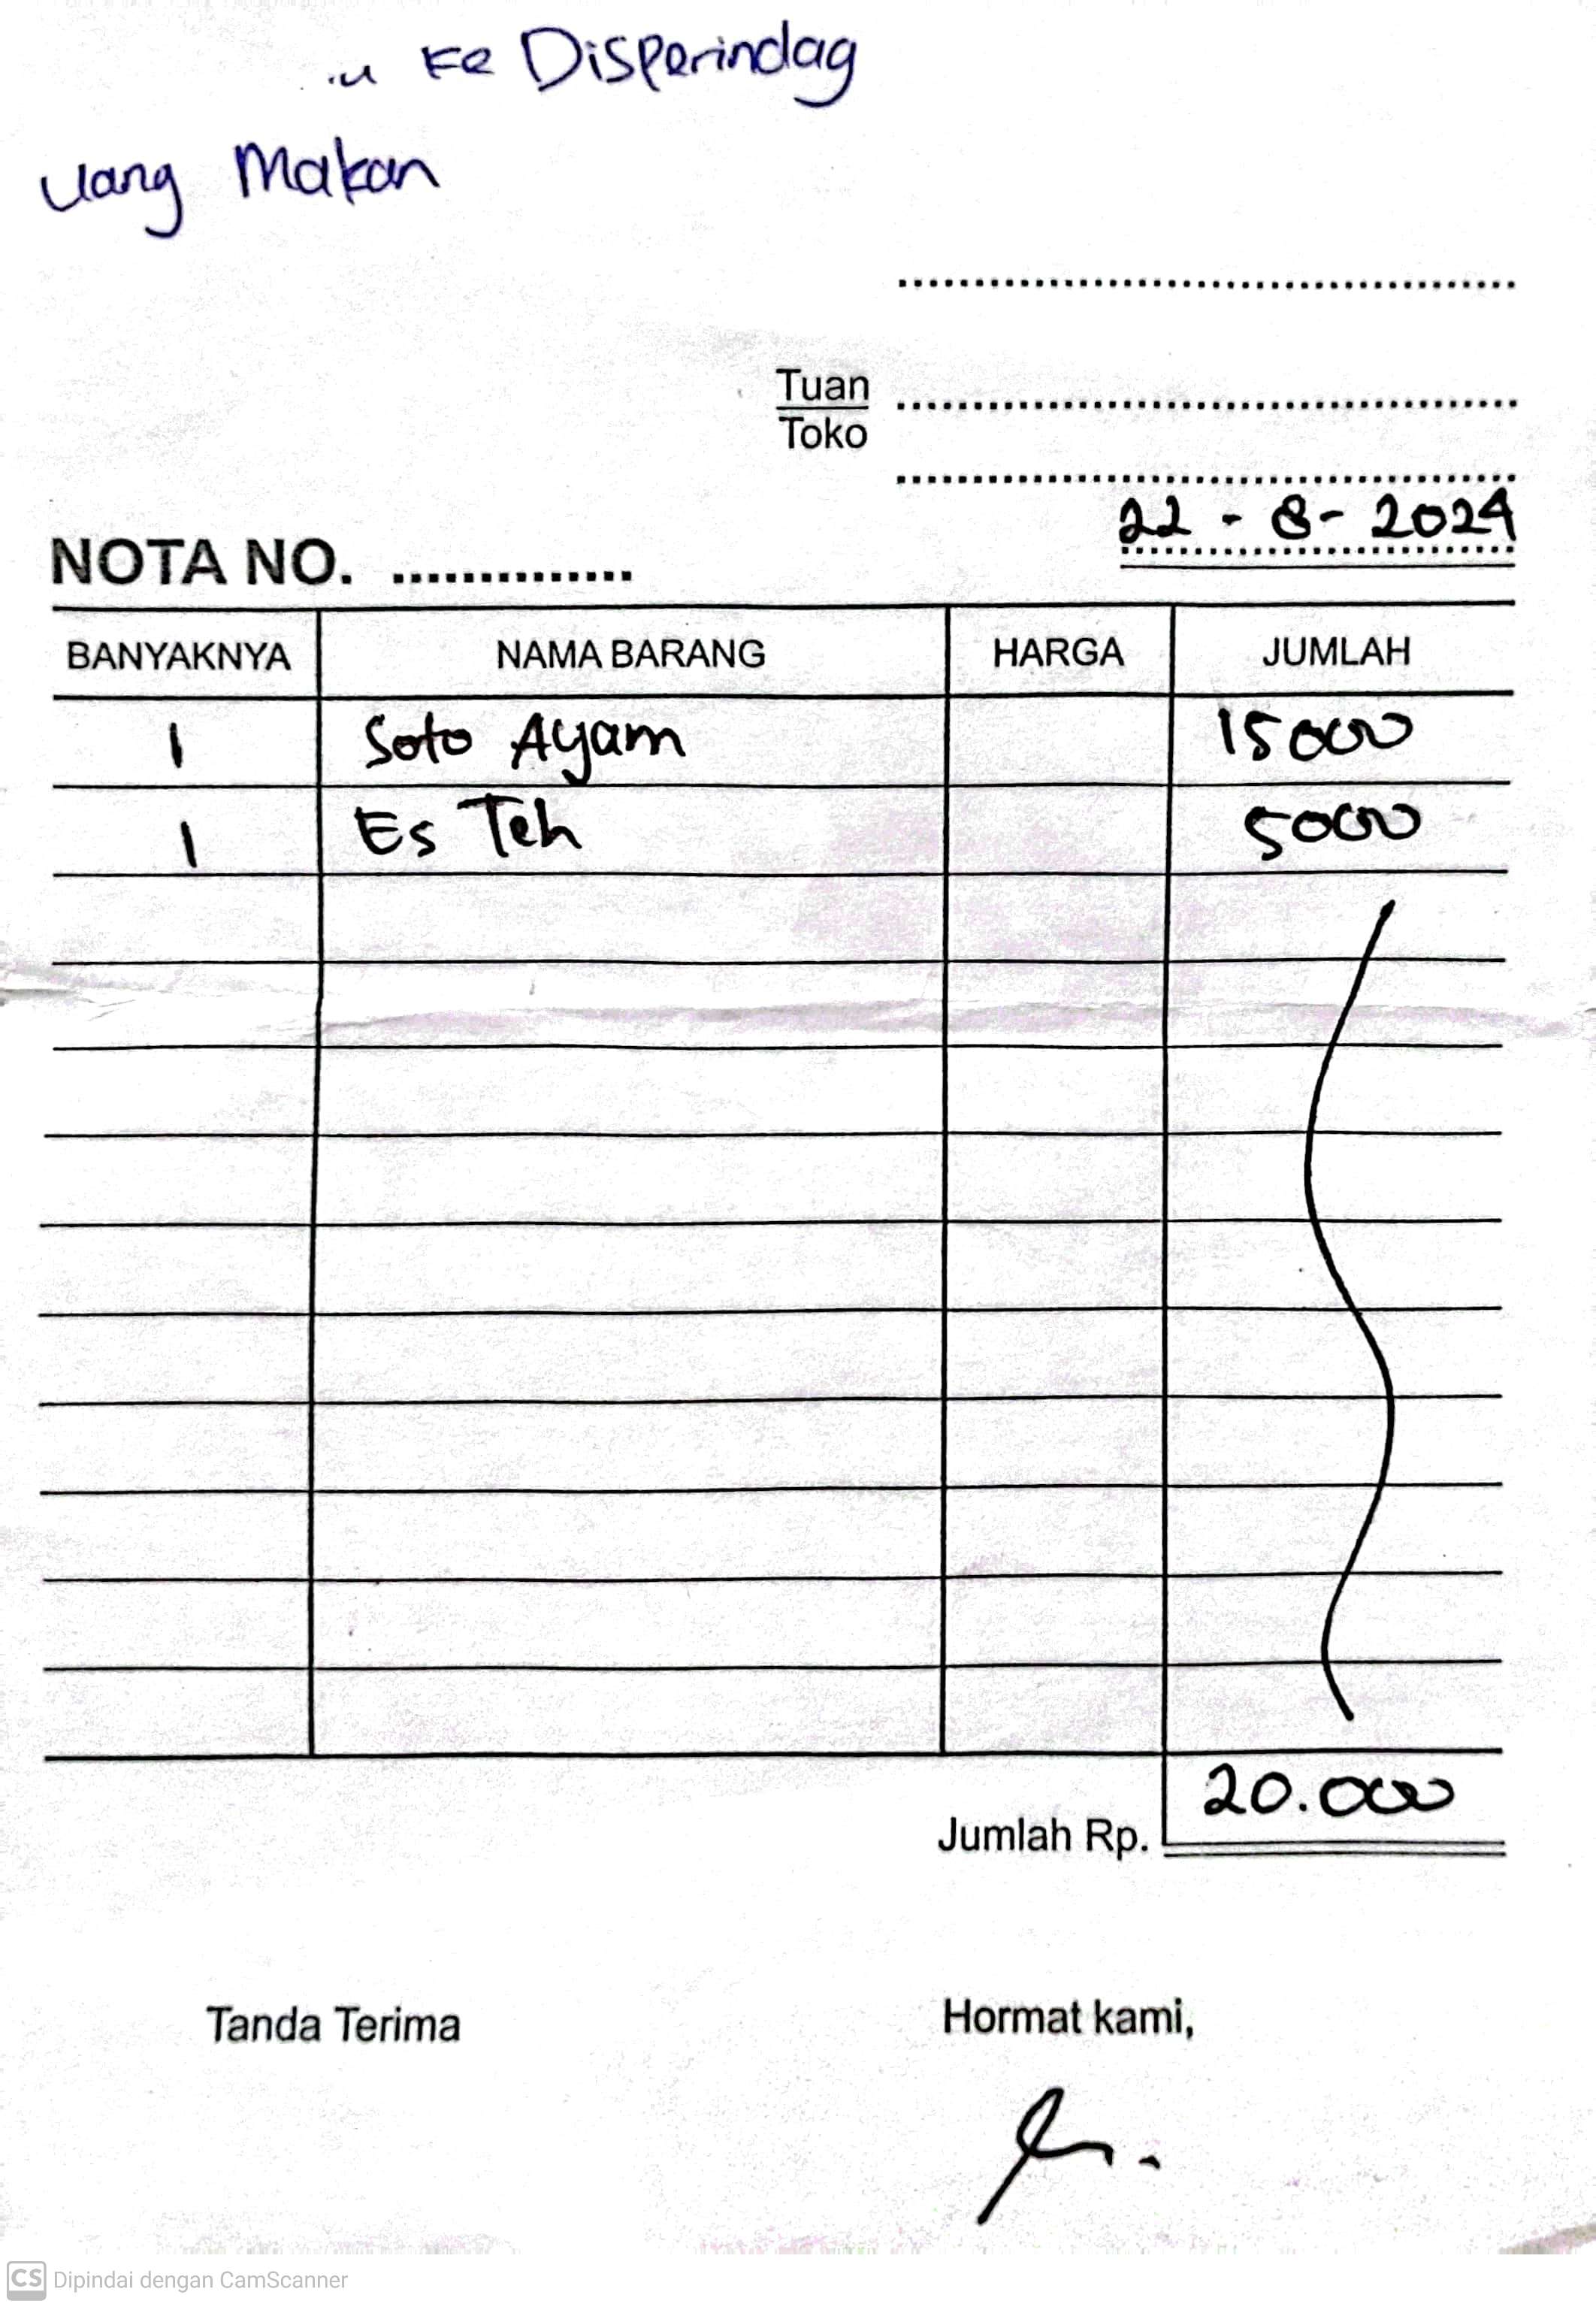 Ke Disperindag
Uang Makan
Tuan
Toko
22 - 8 - 2024
NOTA NO. ..............
BANYAKNYA NAMA BARANG HARGA JUMLAH
1 Soto Ayam 15000
1 Es Teh 5000
Jumlah Rp. 20.000
Tanda Terima Hormat kami,
CS Dipindai dengan CamScanner